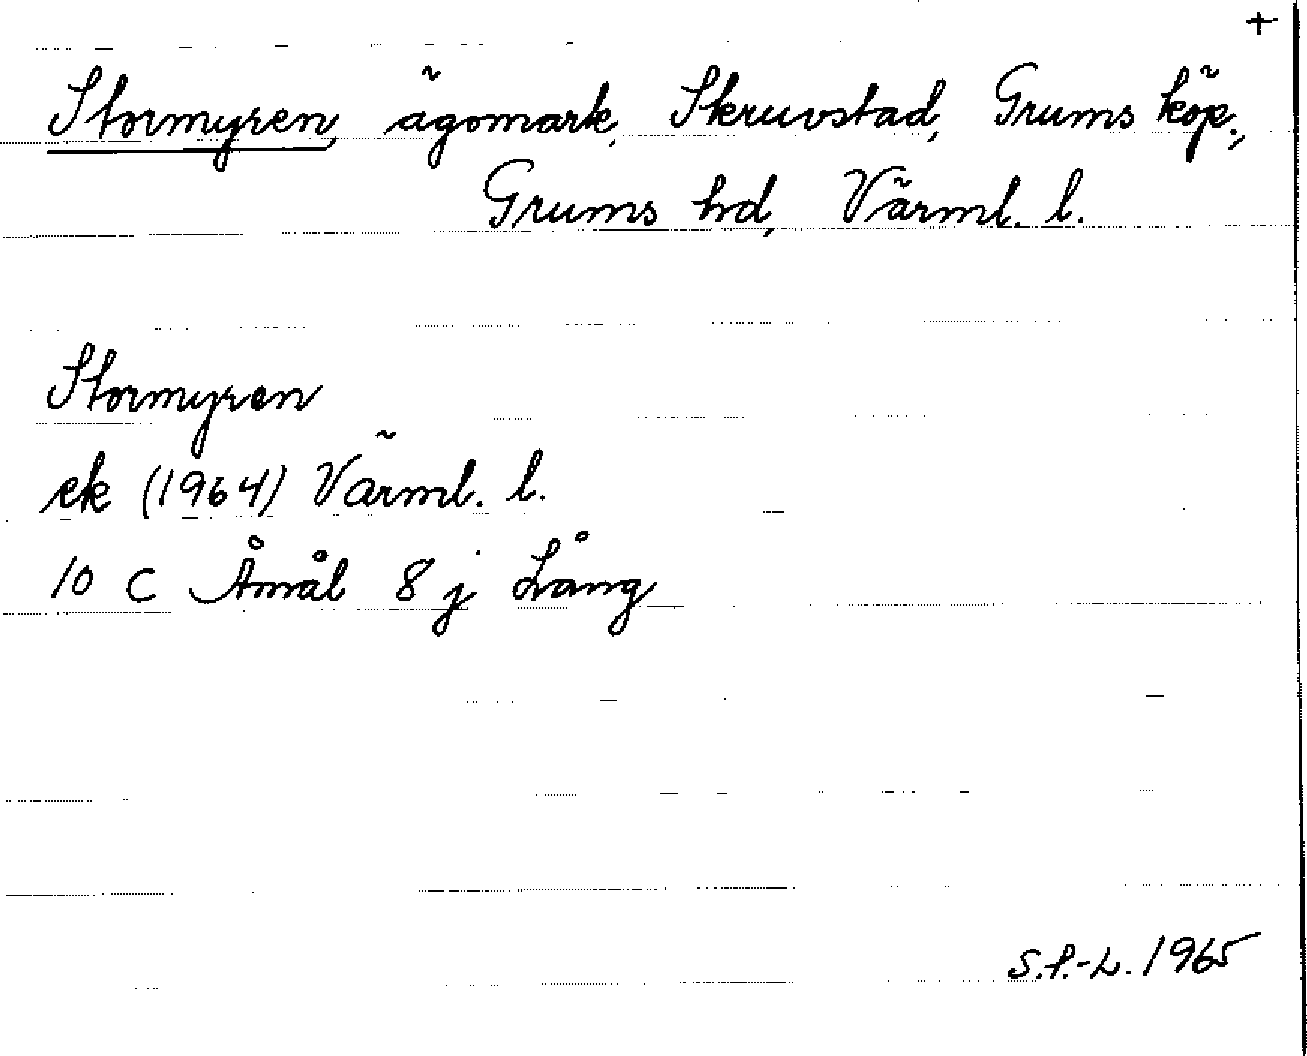 +
Stormyren, ägomark, Skruvstad, Grums köp.,
Grums hd, Värml. l.
Stormyren
ek (1964) Värml. l.
10 C Åmål 8 j Lång
S.P.-L. 1965